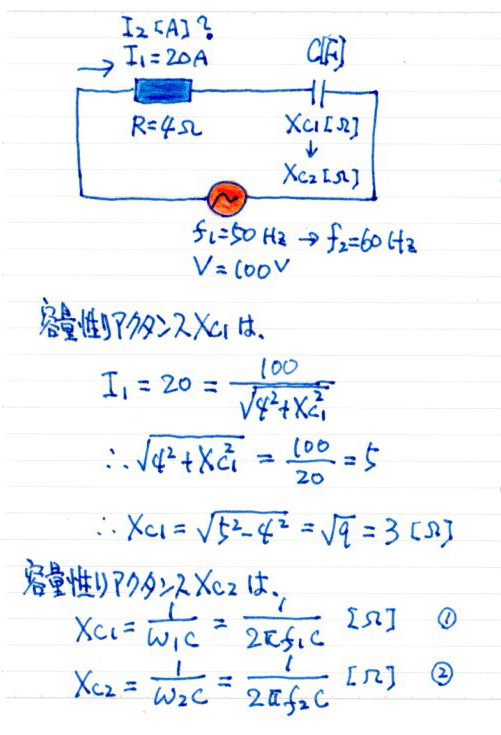 I₂[A]?
I₁=20A
C[F]
R=4Ω
Xc₁[Ω]
↓
Xc₂[Ω]
f₁=50Hz→f₂=60Hz
V=100V
容量性リアクタンスXc₁は、
I₁ = 20 = 100/√(4²+Xc₁²)
∴√(4²+Xc₁²) = 100/20 = 5
∴ Xc₁ = √(5²-4²) = √9 = 3 [Ω]
容量性リアクタンスXc₂は、
Xc₁ = 1/ω₁C = 1/2πf₁C [Ω] ①
Xc₂ = 1/ω₂C = 1/2πf₂C [Ω] ②